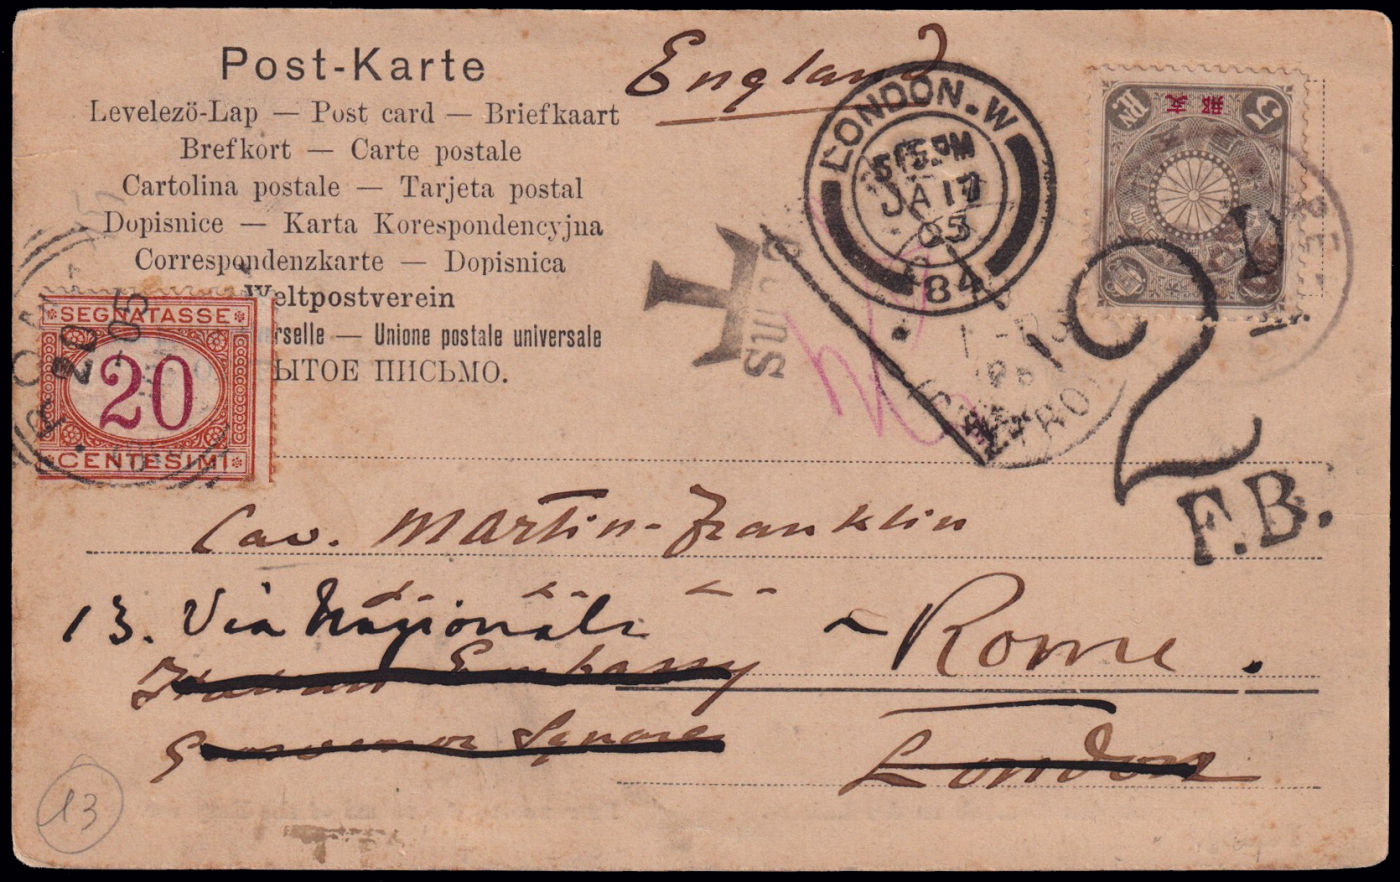 Post-Karte
England
Levelezö-Lap — Post card — Briefkaart
Brefkort — Carte postale
Cartolina postale — Tarjeta postal
Dopisnice — Karta Korespondencyjna
Correspondenzkarte — Dopisnica
Weltpostverein
erselle — Unione postale universale
ЫТОЕ ПИСЬМО.
LONDON.W
5 15 PM
JA 17
05
84
支那
SEGNATASSE
20
CENTESIMI
ROMA
20
05
T
CENTRO
2
F.B.
Cav. Martin-Franklin
13. Via Nazionale
Rome.
Italian Embassy
Grosvenor Square
London
13